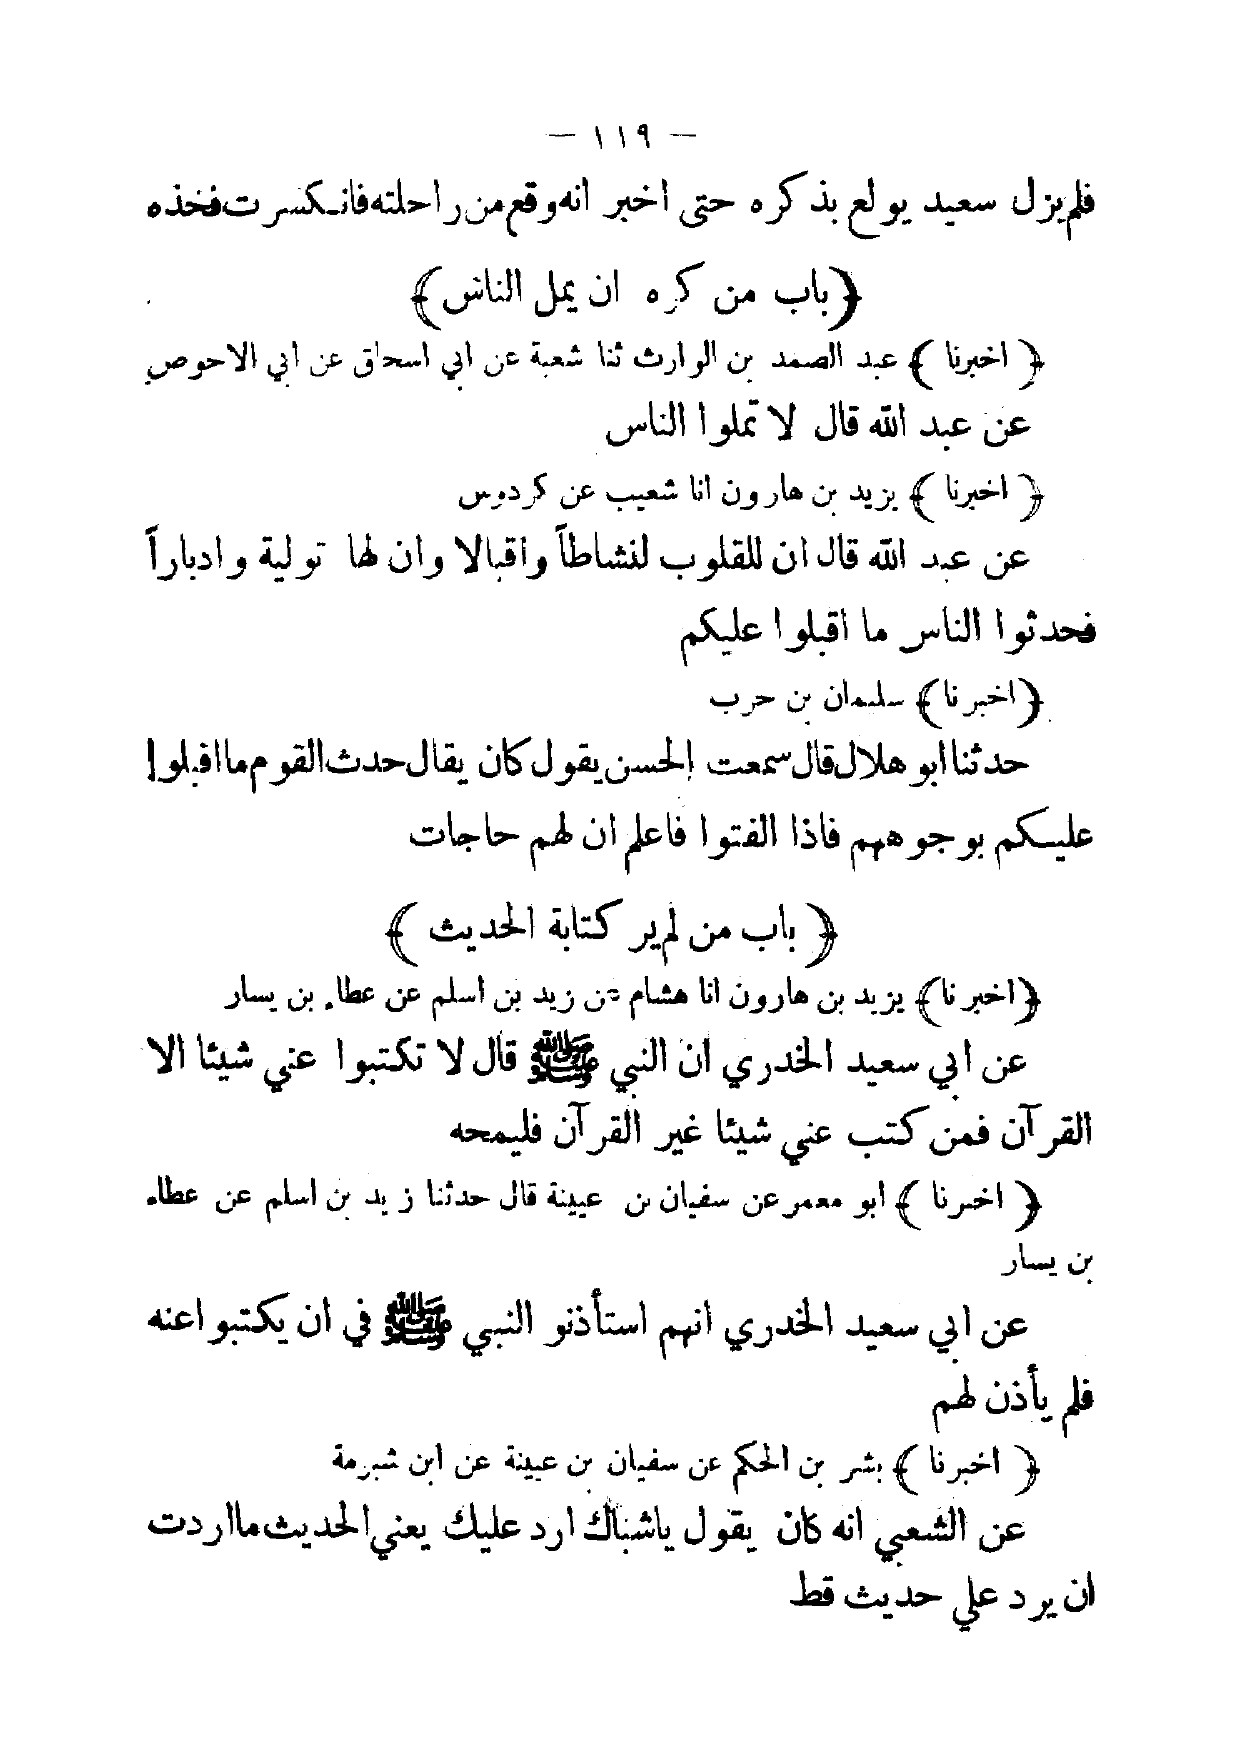 — ١١٩ —
فلم يزل سعيد يولع بذكره حتى اخبر انه وقع من راحلته فانكسرت فخذه
﴿باب من كره ان يمل الناس﴾
﴿ اخبرنا ﴾ عبد الصمد بن الوارث ثنا شعبة عن ابي اسحاق عن ابي الاحوص
عن عبد الله قال لا تملوا الناس
﴿ اخبرنا ﴾ يزيد بن هارون انا شعيب عن كردوس
عن عبد الله قال ان للقلوب لنشاطاً واقبالا وان لها تولية وادباراً
فحدثوا الناس ما اقبلوا عليكم
﴿اخبرنا﴾ سليمان بن حرب
حدثنا ابو هلال قال سمعت الحسن يقول كان يقال حدث القوم ما اقبلوا
عليكم بوجوههم فاذا التفتوا فاعلم ان لهم حاجات
﴿ باب من لم ير كتابة الحديث ﴾
﴿اخبرنا﴾ يزيد بن هارون انا هشام عن زيد بن اسلم عن عطاء بن يسار
عن ابي سعيد الخدري ان النبي ﷺ قال لا تكتبوا عني شيئا الا
القرآن فمن كتب عني شيئا غير القرآن فليمحه
﴿ اخبرنا ﴾ ابو معمر عن سفيان بن عيينة قال حدثنا زيد بن اسلم عن عطاء
بن يسار
عن ابي سعيد الخدري انهم استأذنو النبي ﷺ في ان يكتبوا عنه
فلم يأذن لهم
﴿ اخبرنا ﴾ بشر بن الحكم عن سفيان بن عيينة عن ابن شبرمة
عن الشعبي انه كان يقول ياشباك ارد عليك يعني الحديث ما اردت
ان يرد علي حديث قط